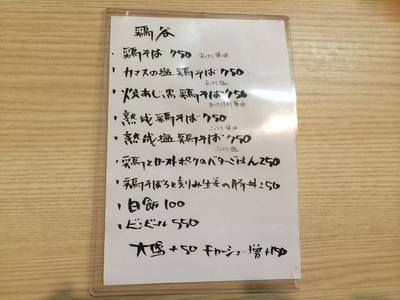 鶏谷
・鶏そば 750 あっさり醤油
・カマスの塩鶏そば 750 あっさり塩
・炊あじ黒鶏そば 750 あっさり醤油
・熟成鶏そば 750 こってり醤油
・熟成塩鶏そば 750 こってり塩
・鶏とローストポークのバターごはん 250
・鶏そぼろと刻み生姜の豚丼 250
・白飯 100
・ビンビール 550
大盛 +50 チャーシュー増 +150